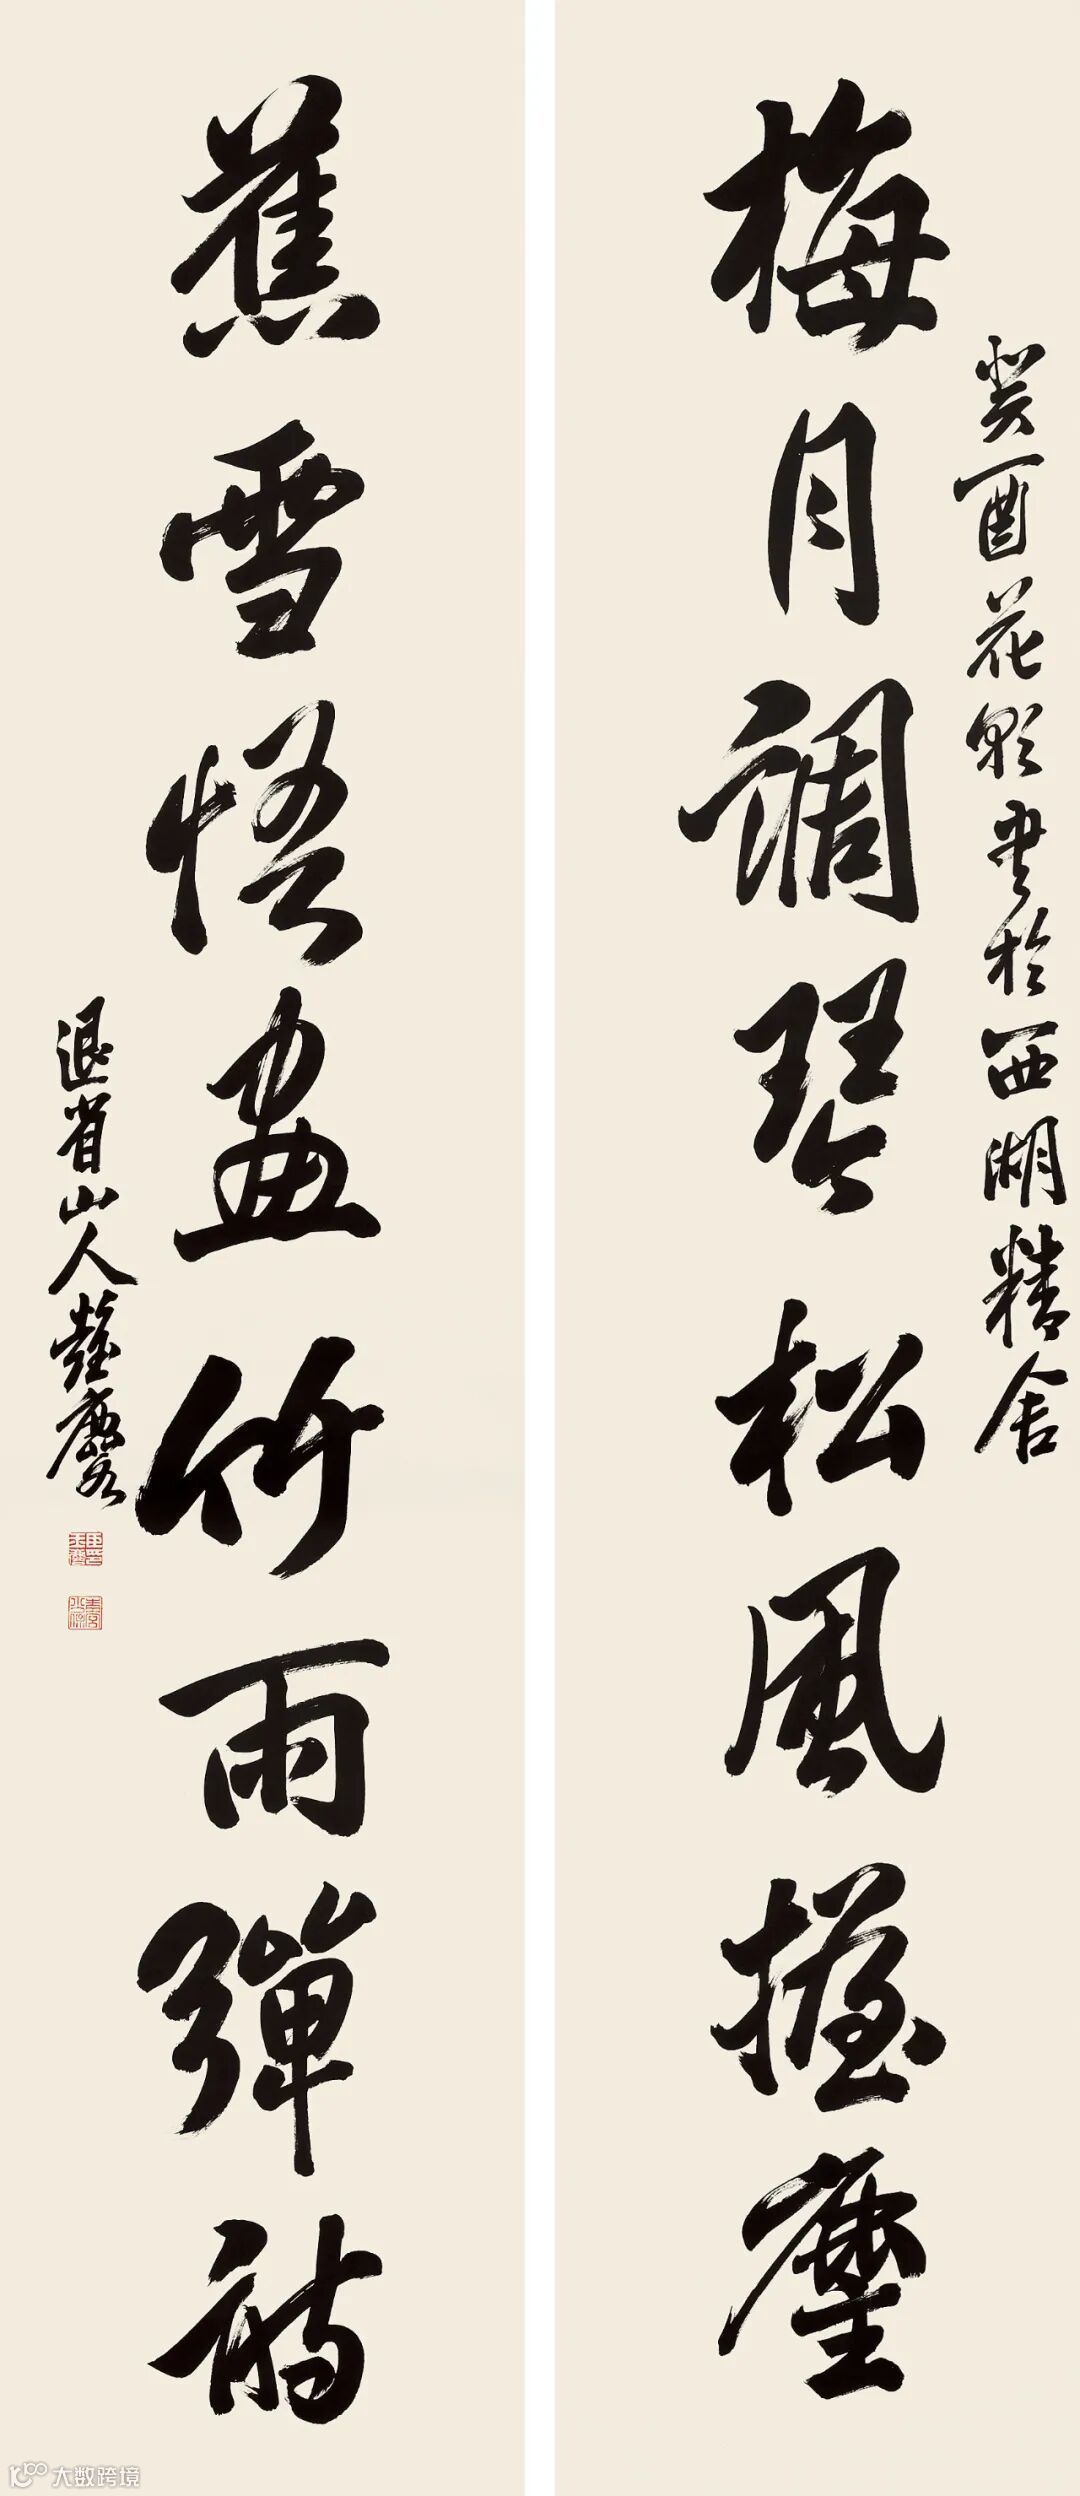 癸酉花朝書於西湖精舍
梅月調琴松風握麈
蕉雪悟畫竹雨彈
退省山人
大数跨境